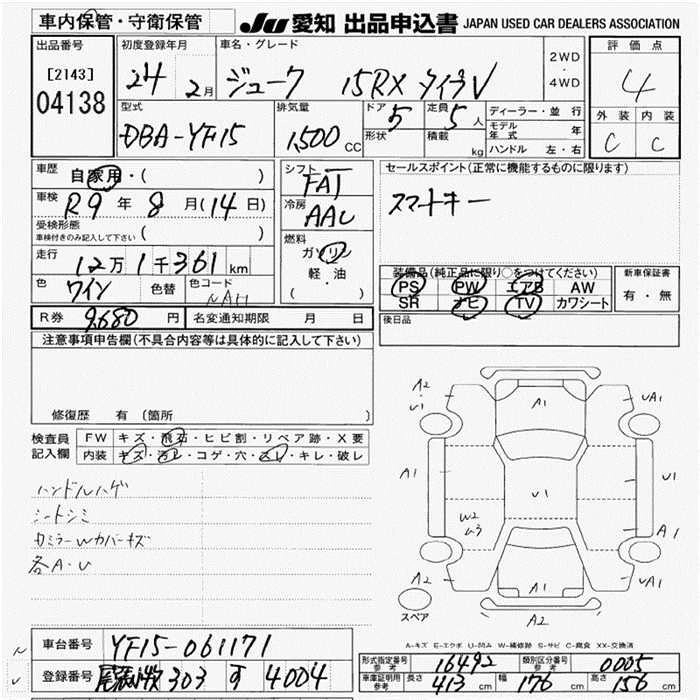 車内保管・守衛保管
JU 愛知 出品申込書 JAPAN USED CAR DEALERS ASSOCIATION
出品番号
[2143]
04138
初度登録年月
24年 2月
車名・グレード
ジューク 15RX タイプV
2WD
・
4WD
評価点
4
外装 内装
C C
型式
DBA-YF15
排気量
1,500 CC
ドア 5
形状
定員 5 人
積載 kg
ディーラー・並行
モデル年式 年
ハンドル 左・右
車歴
自家用・( )
車検
R9年 8月(14日)
受検形態
車検付きのみ記入して下さい ( )
走行
12万1千361km
色 ワイン 色替 色コード NAH
シフト
FAT
冷房
AAC
燃料
ガソリン
軽・油
( )
セールスポイント(正常に機能するものに限ります)
スマートキー
装備品(純正品に限り○をつけてください)
PS PW エアB AW
SR ナビ TV カワシート
新車保証書
有・無
R券 9,680円 名変通知期限 月 日
後日品
注意事項申告欄(不具合内容等は具体的に記入して下さい)
修復歴 有(箇所 )
検査員記入欄
FW キズ・飛石・ヒビ割・リペア跡・X要
内装 キズ・汚レ・コゲ・穴・スレ・キレ・破レ
ハンドルハゲ
シートシミ
カミラーWカバーキズ
各A・U
A2
・U1
A1
UA1
A1
U1
U1
W2
ムラ
A1
A2
A1
UA1
スペア
A2
A-キズ E-エクボ U-凹み W-補修跡 S-サビ C-腐食 XX-交換済
車台番号 YF15-061171
登録番号 尾張小牧 303 す 4004
形式指定番号 参考 16492 類別区分番号 参考 0005
車庫証明用 参考 長さ 413cm 幅 176cm 高さ 156cm